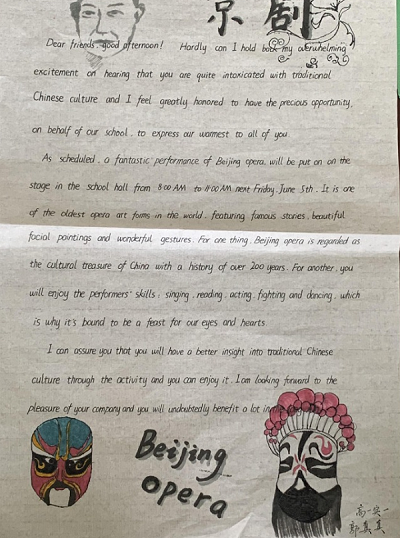 京剧
Dear friends, good afternoon! Hardly can I hold back my overwhelming
excitement on hearing that you are quite intoxicated with traditional
Chinese culture and I feel greatly honored to have the precious opportunity,
on behalf of our school, to express our warmest to all of you.
As scheduled, a fantastic performance of Beijing opera, will be put on on the
stage in the school hall from 8:00 AM to 11:00 AM next Friday, June 5th. It is one
of the oldest opera art forms in the world, featuring famous stories, beautiful
facial paintings and wonderful gestures. For one thing, Beijing opera is regarded as
the cultural treasure of China with a history of over 200 years. For another, you
will enjoy the performers' skills: singing, reading, acting, fighting and dancing, which
is why it's bound to be a feast for our eyes and hearts
I can assure you that you will have a better insight into traditional Chinese
culture through the activity and you can enjoy it. I am looking forward to the
pleasure of your company and you will undoubtedly benefit a lot
Beijing
opera
高一
真真